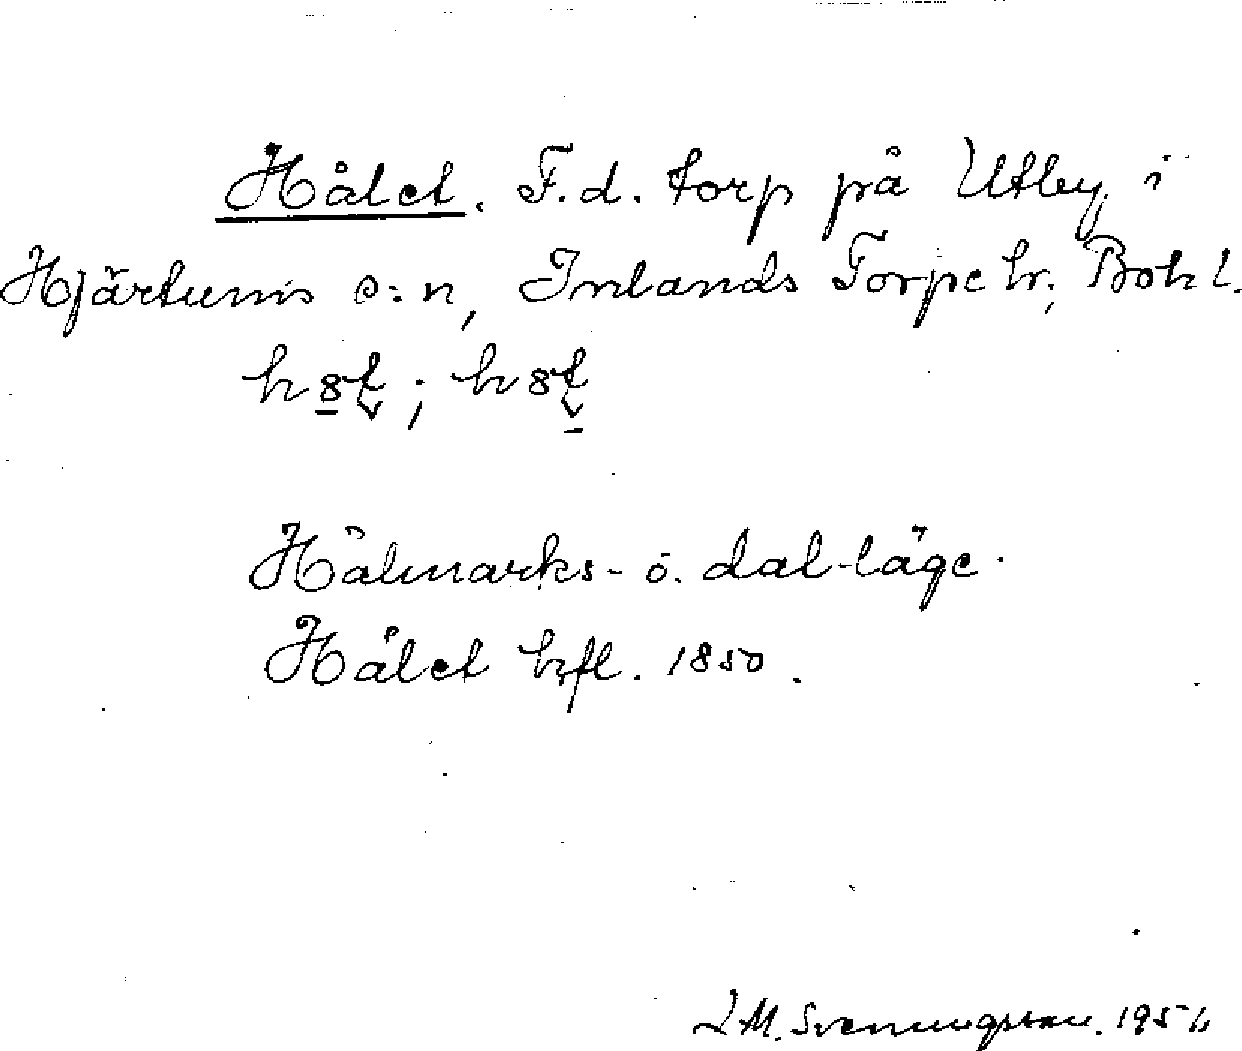 Hålet. F.d. torp på Utby i
Hjärtums s:n, Inlands Torpe hr, Boh l.
Hålmarks- o. dal-läge.
Hålet hfl. 1850.
M. Svenungsson. 195